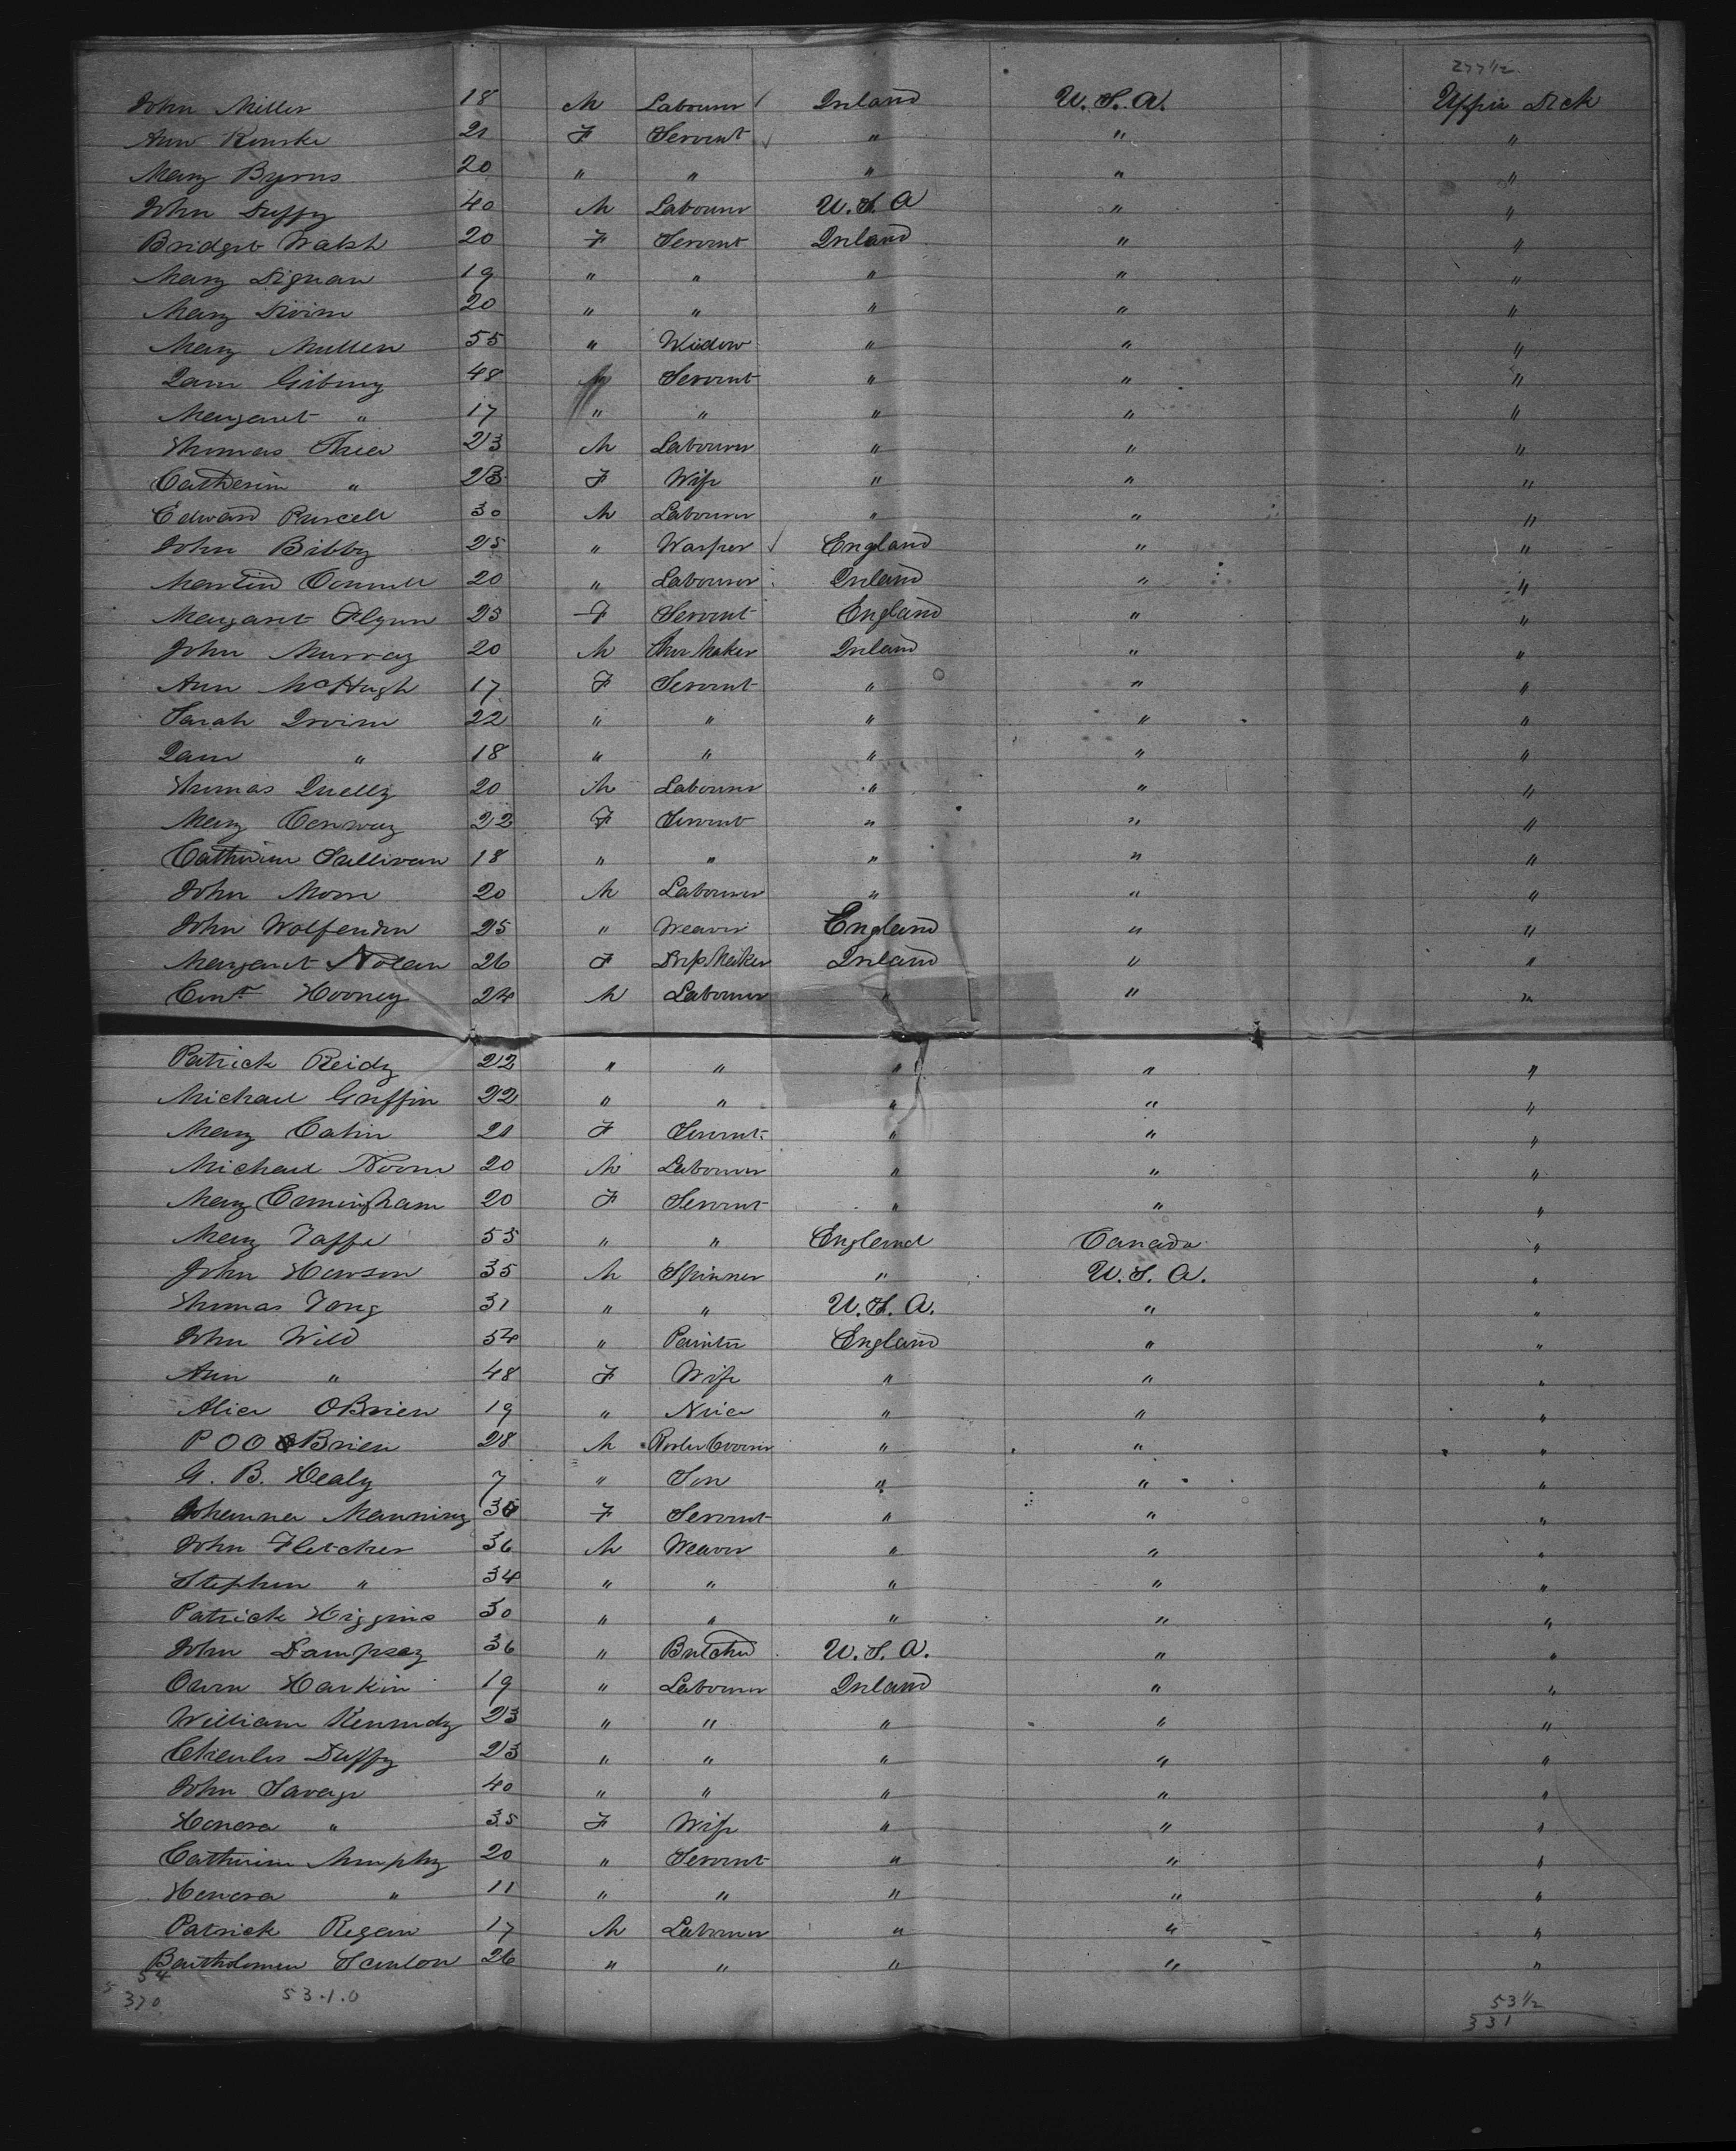 277 1/2
John Miller 18 M Labourer Ireland U.S.A. Upper Deck
Ann Rourke 21 F Servant " " "
Mary Byrns 20 " " " " "
John Duffy 40 M Labourer U.S.A " "
Bridget Walsh 20 F Servant Ireland " "
Mary Dignan 19 " " " " "
Mary Divine 20 " " " " "
Mary Mullen 55 " Widow " " "
Jane Gibney 48 Servant " " "
Margaret " 17 " " " " "
Thomas 23 M Labourer " " "
Catherine " 23 F Wife " " "
Edward Purcell 30 M Labourer " " "
John Bibby 25 " Warper England " "
Martin Connell 20 " Labourer Ireland " "
Margaret Flynn 25 F Servant England " "
John Murray 20 M Shoe Maker Ireland " "
Ann McHugh 17 F Servant " " "
Sarah Irvine 22 " " " " "
Jane " 18 " " " " "
Thomas Quelly 20 M Labourer " " "
Mary Conway 22 F Servant " " "
Catherine Sullivan 18 " " " " "
John Moore 20 M Labourer " " "
John Wolfenden 25 " Weaver England " "
Margaret Nolan 26 F Dress Maker Ireland " "
Hooney 24 M Labourer " " "
Patrick Reidy 22 " " " " "
Michael Griffin 22 " " " " "
Mary 21 F Servant " " "
Michael Noone 20 M Labourer " " "
Mary Cunningham 20 F Servant " " "
Mary Taffe 55 " " England Canada "
John Hewson 35 M Spinner " U.S.A. "
Thomas Tong 31 " " U.S.A. " "
John Wild 54 " Painter England " "
Ann " 48 F Wife " " "
Alice OBrien 19 " Niece " " "
P O OBrien 28 M Roller Coverer " " "
G. B. Healy 7 " Son " " "
Johanna Manning 30 F Servant " " "
John Fletcher 36 M Weaver " " "
Stephen " 34 " " " " "
Patrick Higgins 30 " " " " "
John Dampsey 36 " Butcher U.S.A. " "
Owen Harkin 19 " Labourer Ireland " "
William Kennedy 23 " " " " "
Charles Duffy 23 " " " " "
John Savage 40 " " " " "
Honora " 35 F Wife " " "
Catherine Murphy 20 " Servant " " "
Honora " 11 " " " " "
Patrick Regan 17 M Labourer " " "
Bartholomew Scanlon 26 " " " " "
54
370 53.1.0 53 1/2
331